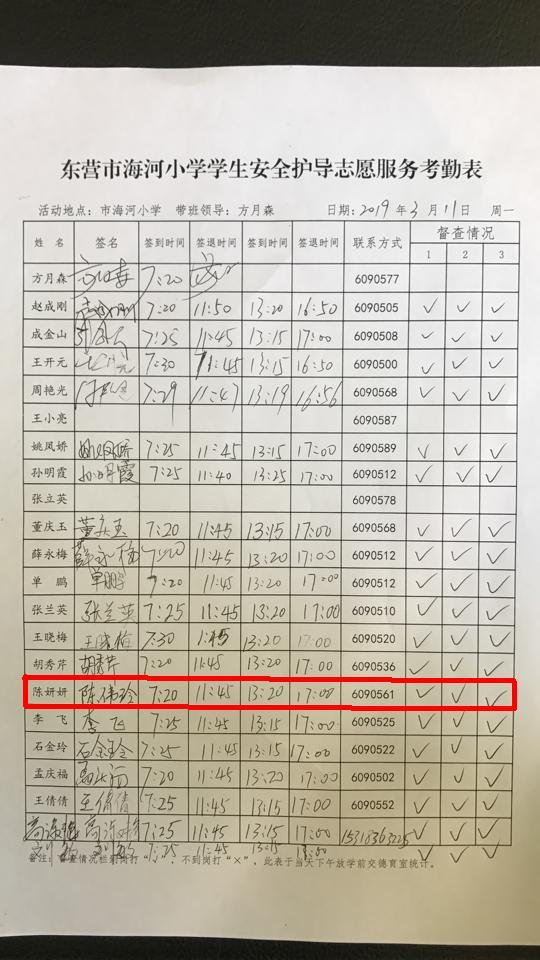 东营市海河小学学生安全护导志愿服务考勤表
活动地点：市海河小学 带班领导：方月森 日期：2019年3月11日 周一
姓名 签名 签到时间 签退时间 签到时间 签退时间 联系方式 督查情况
1 2 3
方月森 7:20 6090577
赵成刚 7:20 11:50 13:20 16:50 6090505 ✓ ✓ ✓
成金山 7:25 11:45 13:15 17:00 6090508 ✓ ✓ ✓
王开元 7:30 11:45 13:20 16:50 6090500 ✓ ✓ ✓
周艳光 7:29 11:47 13:19 16:56 6090568 ✓ ✓ ✓
王小亮 6090587
姚凤娇 姚凤娇 7:25 11:45 13:15 17:00 6090589 ✓ ✓ ✓
孙明霞 孙明霞 7:25 11:40 13:25 17:00 6090512 ✓ ✓ ✓
张立英 6090578
董庆玉 董庆玉 7:20 11:45 13:15 17:00 6090568 ✓ ✓ ✓
薛永梅 薛永梅 7:20 11:45 13:20 17:00 6090512 ✓ ✓ ✓
单鹏 单鹏 7:20 11:45 13:20 17:00 6090512 ✓ ✓ ✓
张兰英 张兰英 7:25 11:45 13:20 17:00 6090510 ✓ ✓ ✓
王晓梅 王晓梅 7:30 1:45 13:20 17:00 6090520 ✓ ✓ ✓
胡秀芹 胡秀芹 7:20 11:45 13:20 17:00 6090536 ✓ ✓ ✓
陈妍妍 陈伟玲 7:20 11:45 13:20 17:00 6090561 ✓ ✓ ✓
李飞 李飞 7:25 11:45 13:15 17:00 6090525 ✓ ✓ ✓
石金玲 石金玲 7:25 11:45 13:15 17:00 6090522 ✓ ✓ ✓
孟庆福 7:20 11:45 13:20 17:00 6090502 ✓ ✓ ✓
王倩倩 王倩倩 7:25 11:45 13:15 17:00 6090552 ✓ ✓ ✓
7:25 11:45 13:15 17:00 15318363225 ✓ ✓ ✓
7:25 11:45 13:15 ✓ ✓ ✓
备注：督查情况栏到岗打“✓”，不到岗打“×”，此表于当天下午放学前交德育室统计。